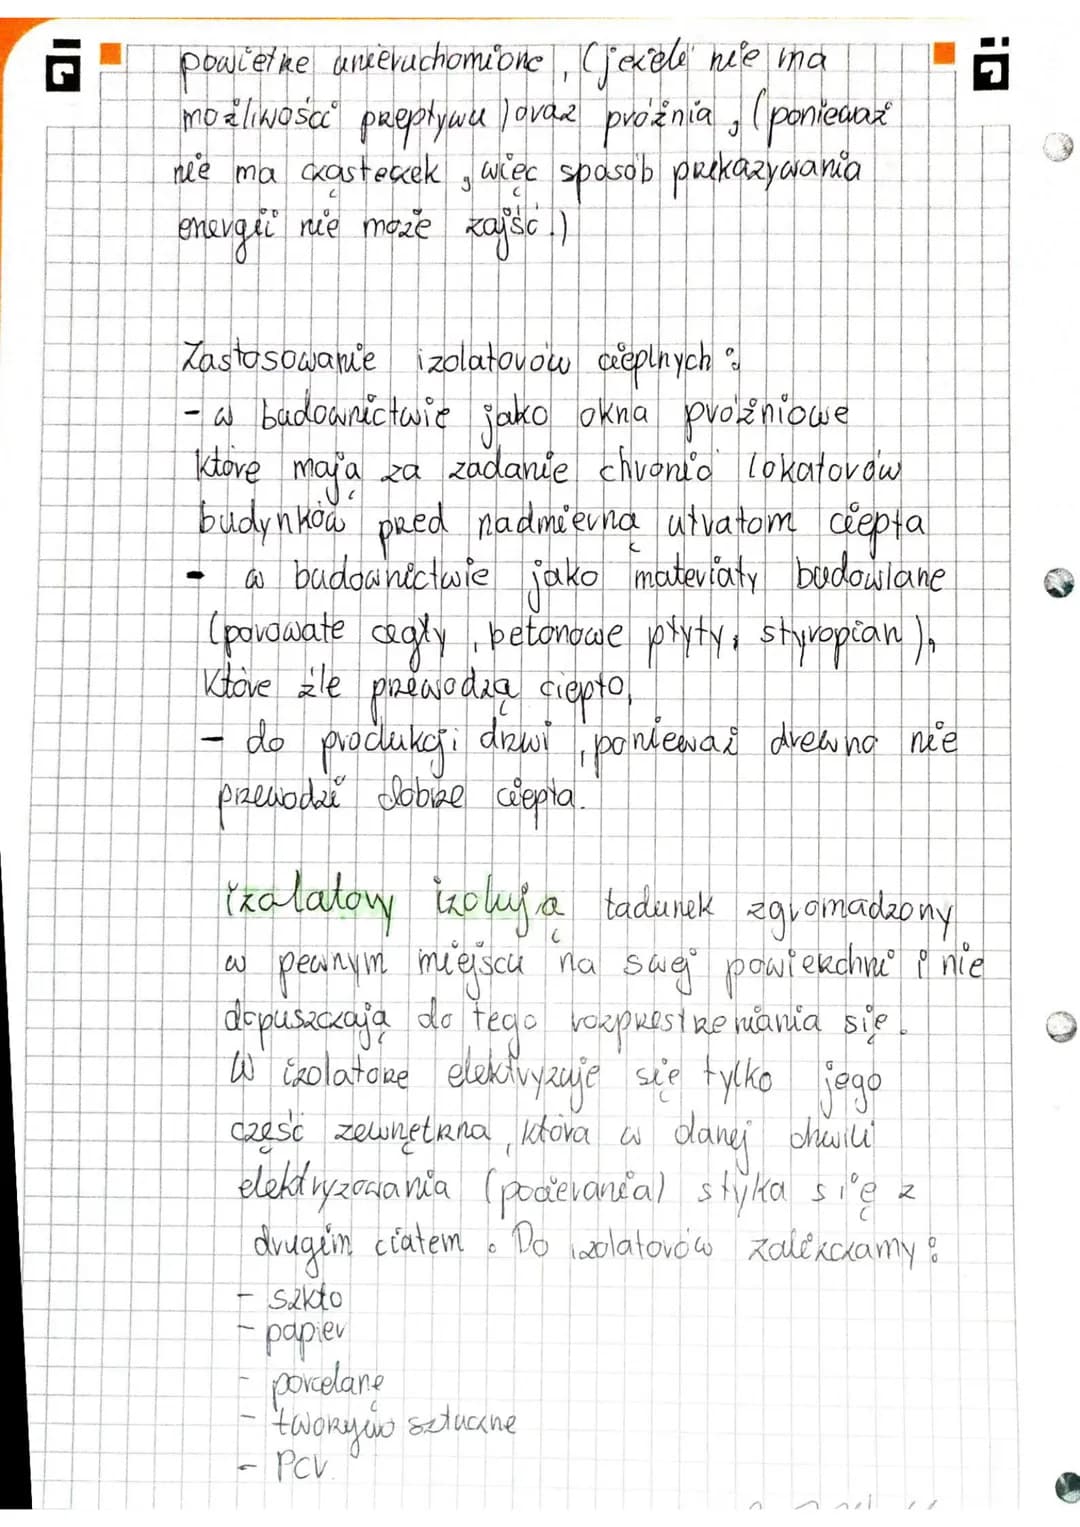 powietrze unieruchomione, (jeżeli nie ma
możliwości przepływu) oraz próżnia, (ponieważ
nie ma cząsteczek, więc sposób przekazywania
energii nie może zajść.)
Zastosowanie izolatorów cieplnych:
- w budownictwie jako okna próżniowe
które mają za zadanie chronić lokatorów
budynków przed nadmierną utratom ciepła
- w budownictwie jako materiały budowlane
(porowate cegły, betonowe płyty, styropian),
które źle przewodzą ciepło,
- do produkcji drzwi, ponieważ drewno nie
przewodzi dobrze ciepła.
izolatory izolują ładunek zgromadzony
w pewnym miejscu na swej powierzchni i nie
dopuszczają do tego rozprzestrzeniania się.
W izolatorze elektryzuje się tylko jego
część zewnętrzna, która w danej chwili
elektryzowania (pocierania) styka się z
drugim ciałem. Do izolatorów zaliczamy:
- szkło
- papier
- porcelanę
- tworzywo sztuczne
- PCV.